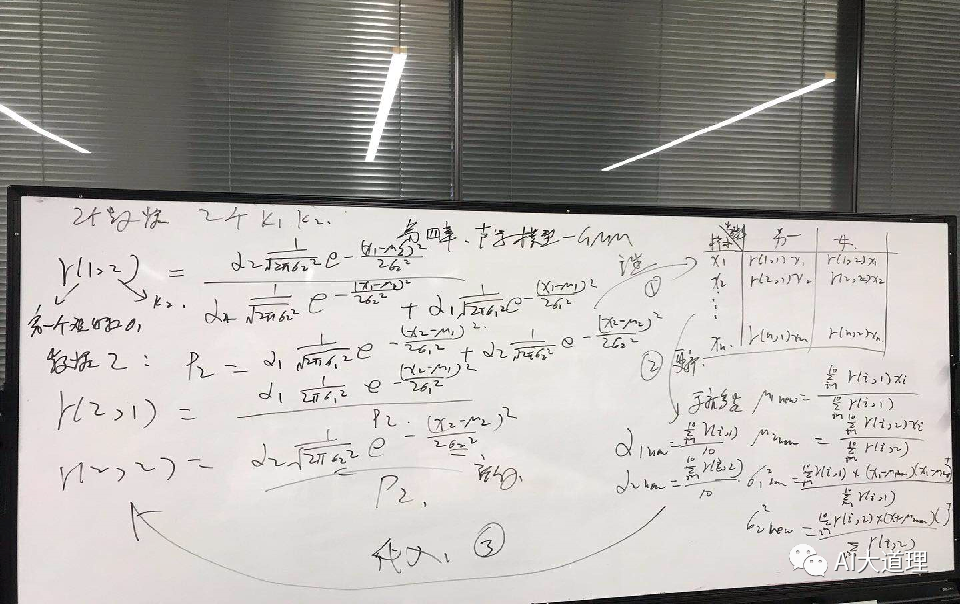 2个数据 2个K₁ K₂.
第四章、声学模型-GMM
r(1,2) = α₂ 1/√2πσ₂² e -(x₁-μ₂)²/2σ₂²
α₂ 1/√2πσ₂² e -(x₁-μ₂)²/2σ₂² + α₁ 1/√2πσ₁² e -(x₁-μ₁)²/2σ₁²
k₂.
数据2: P₂ = α₁ 1/√2πσ₁² e -(x₂-μ₁)²/2σ₁² + α₂ 1/√2πσ₂² e -(x₂-μ₂)²/2σ₂²
r(2,1) = α₁ 1/√2πσ₁² e -(x₂-μ₁)²/2σ₁²
P₂.
r(2,2) = α₂ 1/√2πσ₂² e -(x₂-μ₂)²/2σ₂²
P₂.
代入. ③
①
男一 女.
x₁ r(1,1)x₁ r(1,2)x₁
x₂ r(2,1)x₂ r(2,2)x₂
⋮
xn r(n,1)xn r(n,2)xn
② 更新.
μ₁new = Σr(i,1)xi / Σr(i,1)
α₁new = Σr(i,1) / 10
μ₂new = Σr(i,2)xi / Σr(i,2)
α₂new = Σr(i,2) / 10
σ₁²new = Σr(i,1)×(xi-μnew)(xi-μnew) / Σr(i,1)
σ₂²new = Σr(i,2)×(xi-μnew)( ) / Σr(i,2)
AI大道理